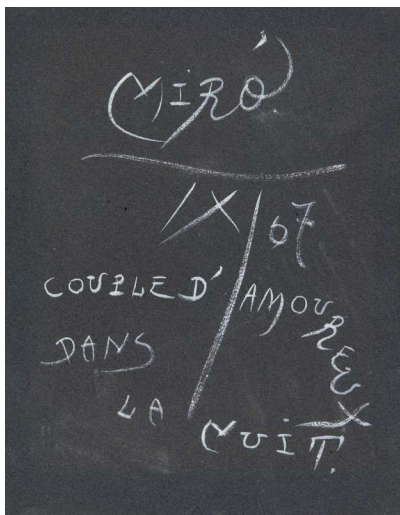 MIRÓ.
IX/67
COUPLE D'AMOUREUX
DANS
LA NUIT.